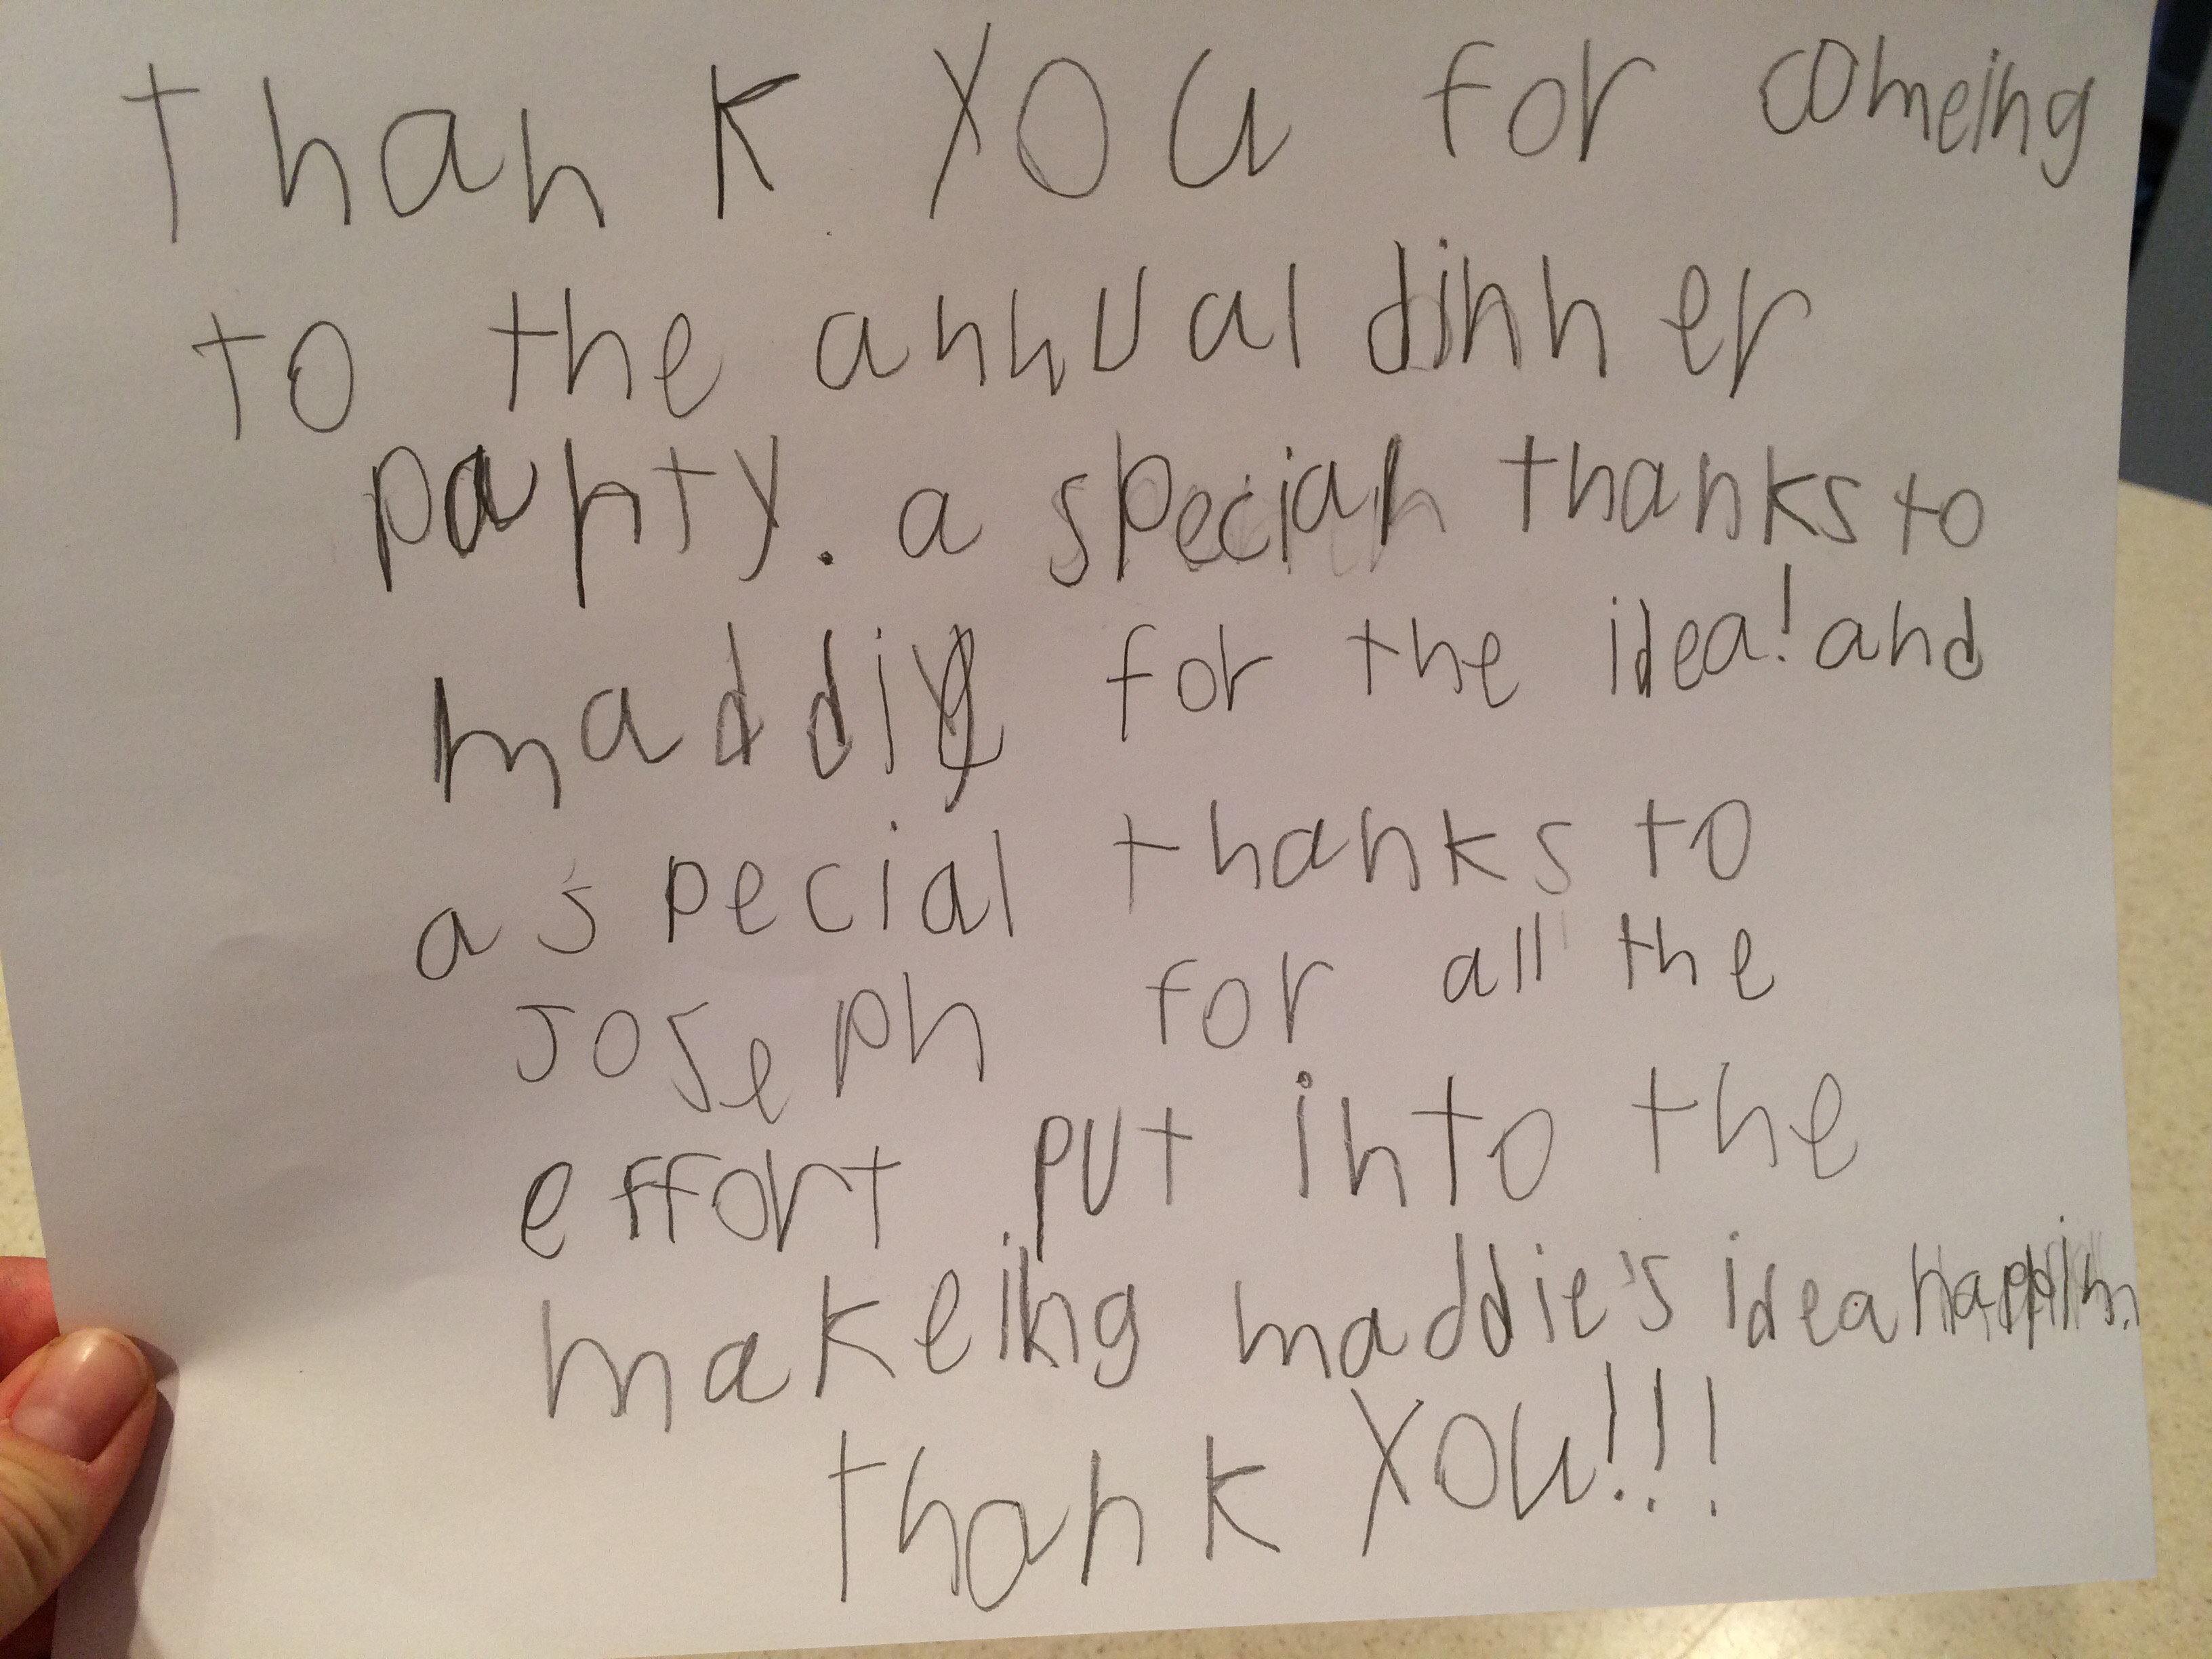 thank you for comeing
to the annual dinner
party. a special thanks to
maddie for the idea! and
a special thanks to
Joseph for all the
effort put into the
makeing maddie's idea
thank you!!!